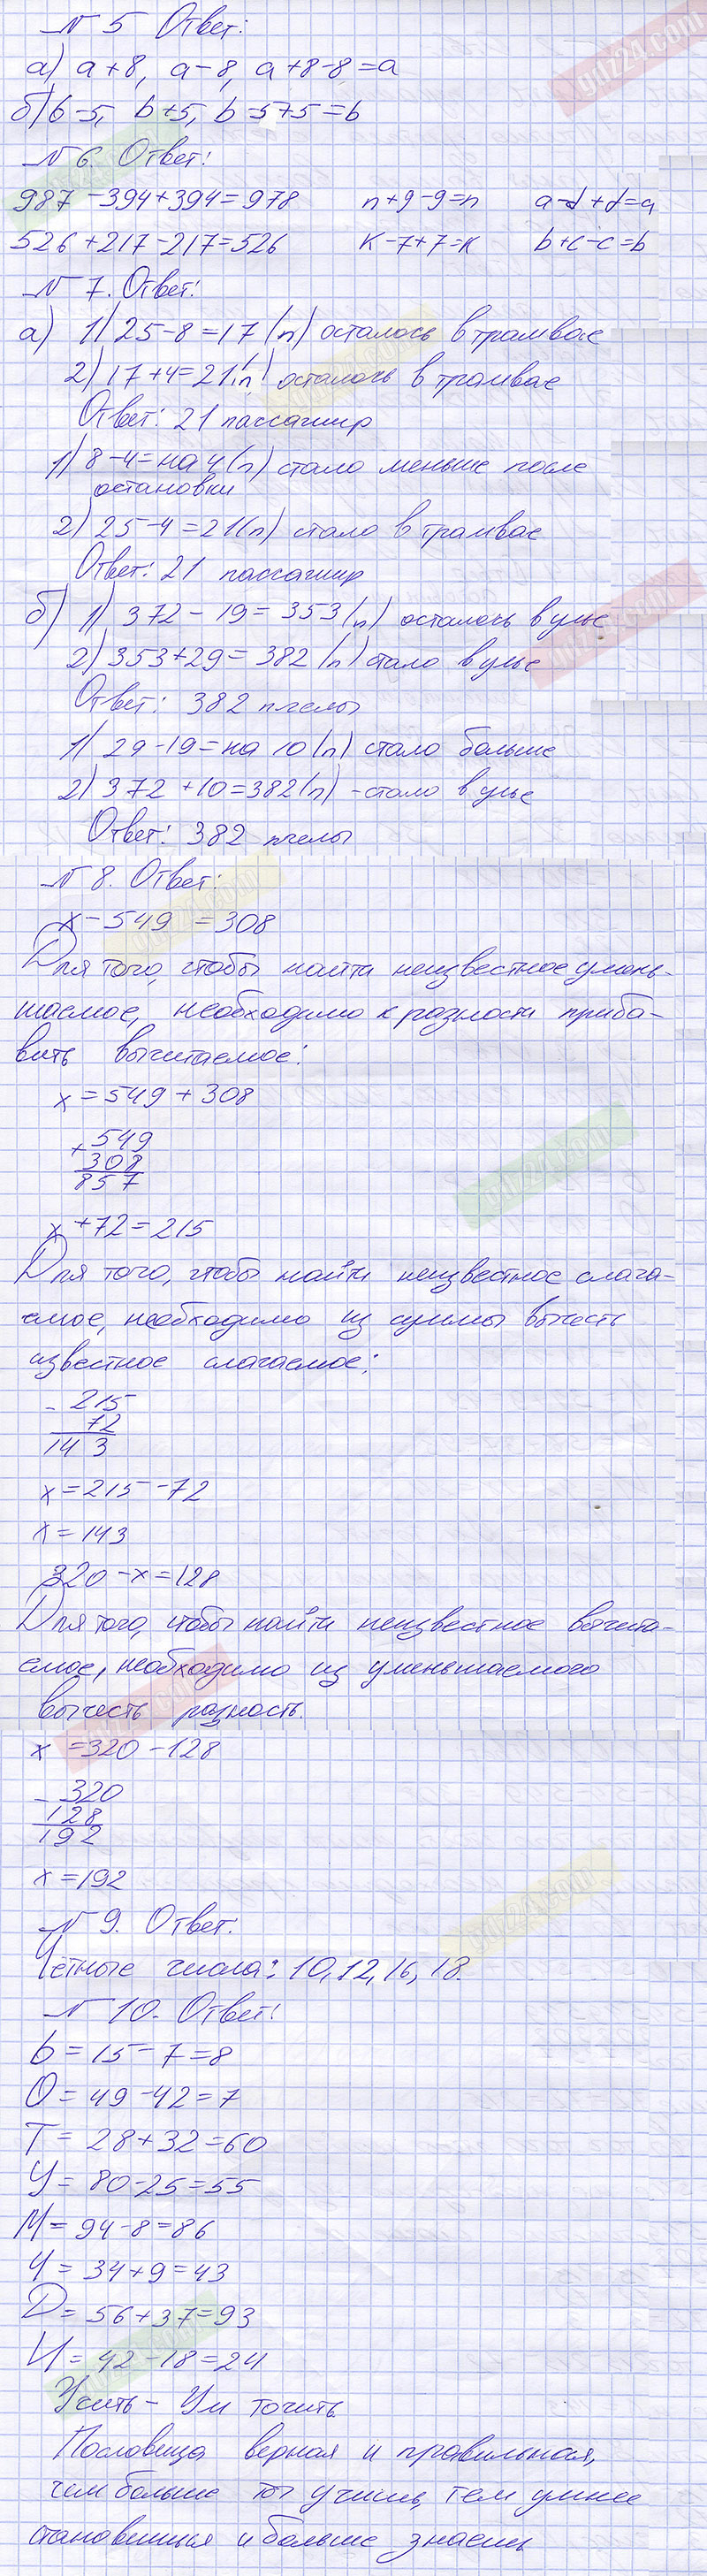 № 5 Ответ:
а) a+8, a-8, a+8-8=a
б) b-5, b+5, b-5+5=b
№ 6. Ответ:
987-394+394=978 n+9-9=n a-d+d=a
526+217-217=526 k-7+7=k b+c-c=b
№ 7. Ответ:
а) 1) 25-8=17 (п) осталось в трамвае
2) 17+4=21(п) осталось в трамвае
Ответ: 21 пассажир
1) 8-4=на 4 (п) стало меньше после
остановки
2) 25-4=21(п) стало в трамвае
Ответ: 21 пассажир
б) 1) 372-19=353(п) осталось в улье
2) 353+29=382 (п) стало в улье
Ответ: 382 пчелы
1) 29-19=на 10 (п) стало больше
2) 372+10=382(п) - стало в улье
Ответ: 382 пчелы
№ 8. Ответ:
x-549=308
Для того, чтобы найти неизвестное умень-
шаемое, необходимо к разности приба-
вить вычитаемое:
x=549+308
+549
308
857
x+72=215
Для того, чтобы найти неизвестное слага-
емое, необходимо из суммы вычесть
известное слагаемое:
-215
72
143
x=215-72
x=143
320-x=128
Для того, чтобы найти неизвестное вычита-
емое, необходимо из уменьшаемого
вычесть разность.
x=320-128
-320
128
192
x=192
№ 9. Ответ.
Чётные числа: 10, 12, 16, 18.
№ 10. Ответ:
Ь=15-7=8
О=49-42=7
Т=28+32=60
У=80-25=55
М=94-8=86
Ч=34+9=43
Д=56+37=93
И=42-18=24
Ум точить
Пословица верная и правильная,
чем больше ты учишь, тем умнее
становишься и больше знаешь
gdz24.com